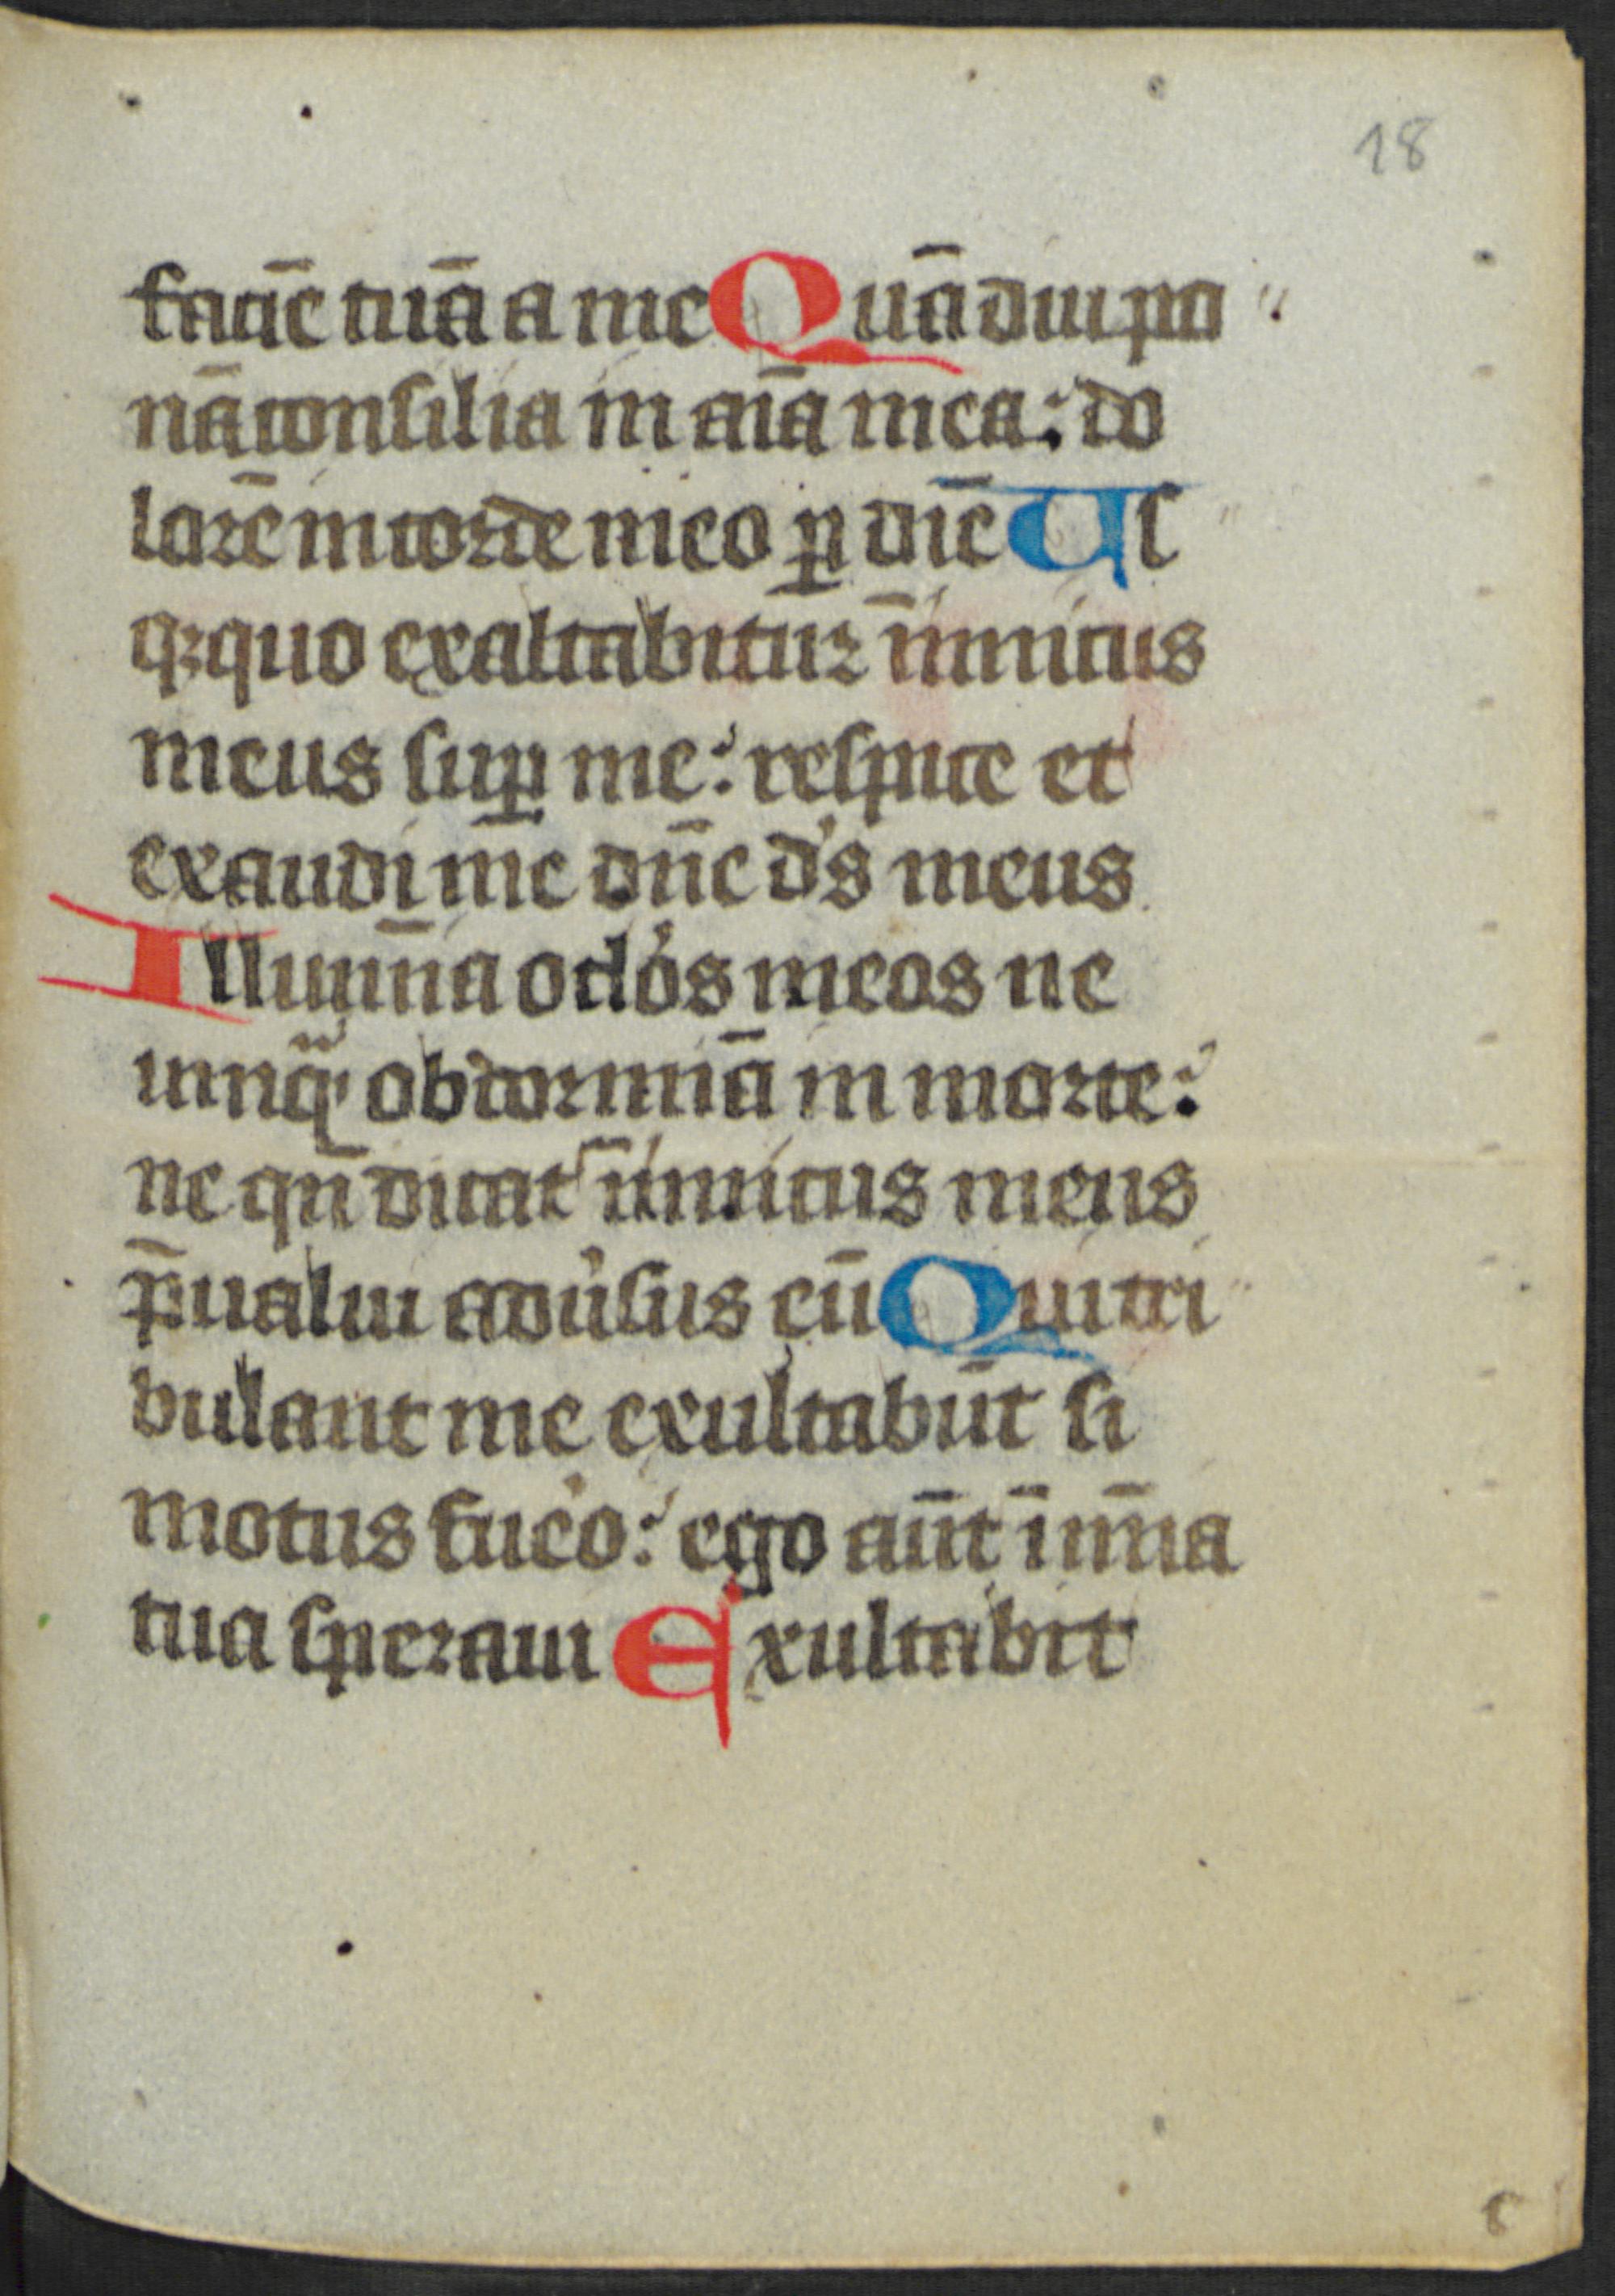 18
faciē tuā a me Quādiu po
nā consilia in aīa mea: do
lorē in corde meo ꝑ diē Us
qꝫ quo exaltabitur īimicus
meus suꝑ me: respice et
exaudi me dn̄e ds̄ meus
Illumīa oclos meos ne
umqͣ obdormiā in morte:
ne qn̄ dicat īimicus meus
p̄ualui aduˀsus eū Qui tri
bulant me exultabūt si
motus fueˀo: ego aūt ī mīa
tua speraui Exultabit